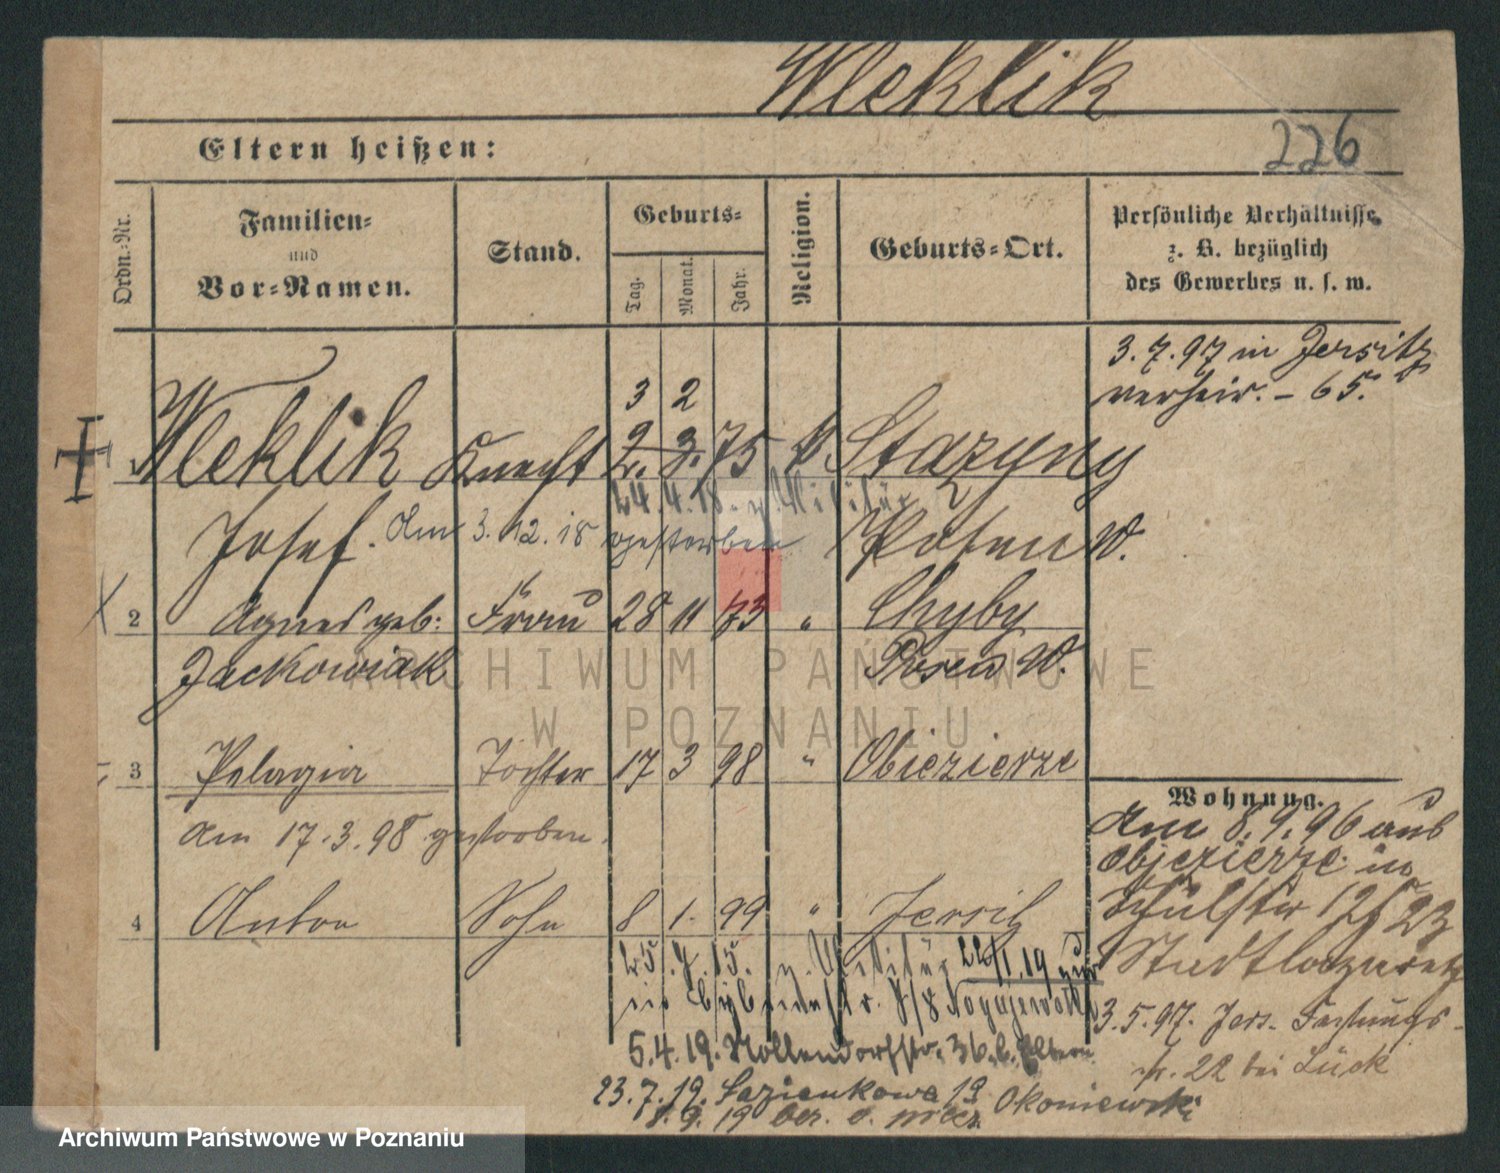 Weklik
Eltern heißen:
226
Ordn.-Nr.
Familien-
und
Vor-Namen.
Stand.
Geburts-
Tag.
Monat.
Jahr.
Religion.
Geburts-Ort.
Persönliche Verhältnisse
z. B. bezüglich
des Gewerbes u. s. w.
3.7.97 in Jersitz
verheir. - 65.
3 2
Weklik Knecht 2. 3. 75
Josef. am 3.12.18 gestorben
24.4.18. z. Militär
Posen W.
2 Agnes geb: Frau 28 11 73 " Chyby
Jackowiak Posen W.
ARCHIWUM PAŃSTWOWE
W POZNANIU
3 Pelagia Tochter 17 3 98 " Obiezierze
am 17.3.98 gestorben.
4 Anton Sohn 8 1. 99 " Jersitz
25.7.15. z. Militär 22/1.19 zur
5.4.19. Nollendorfstr. 36. b. Eltern
23.7.19. Lazienkowa 19 Okoniewski
Wohnung.
Am 8.9.96 aus
Objezierze in
Schulstr 12
Stadtlazareth
3.5.97. Jers. Festungs-
str. 22 bei Lück
Archiwum Państwowe w Poznaniu